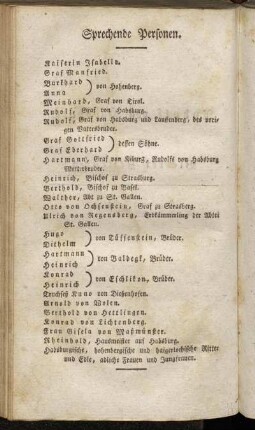 Sprechende Personen.
Kaiserin Isabella.
Graf Manfried.
Burkhard
Anna
von Hohenberg.
Meinhard, Graf von Tirol.
Rudolf, Graf von Habsburg.
Rudolf, Graf von Habsburg und Laufenburg, des vori-
gen Vatersbruder.
Graf Gottfried
Graf Eberhard
dessen Söhne.
Hartmann, Graf von Kiburg, Rudolfs von Habsburg
Mutterbruder.
Heinrich, Bischof zu Strasburg.
Berthold, Bischof zu Basel.
Walther, Abt zu St. Gallen.
Otto von Ochsenstein, Graf zu Strasberg.
Ulrich von Regensberg, Erbkämmerling der Abtei
St. Gallen.
Hugo
Diethelm
von Tüffenstein, Brüder.
Hartmann
Heinrich
von Baldegk, Brüder.
Konrad
Heinrich
von Eschlikon, Brüder.
Truchseß Kuno von Dießenhofen.
Arnold von
Berthold von Hettlingen.
Konrad von Lichtenberg.
Frau Gisela von Maßmünster.
Rheinhold, Hausmeister auf Habsburg.
Habsburgische, hohenbergische und
Ritter
und Edle, adliche Frauen und Jungfrauen.